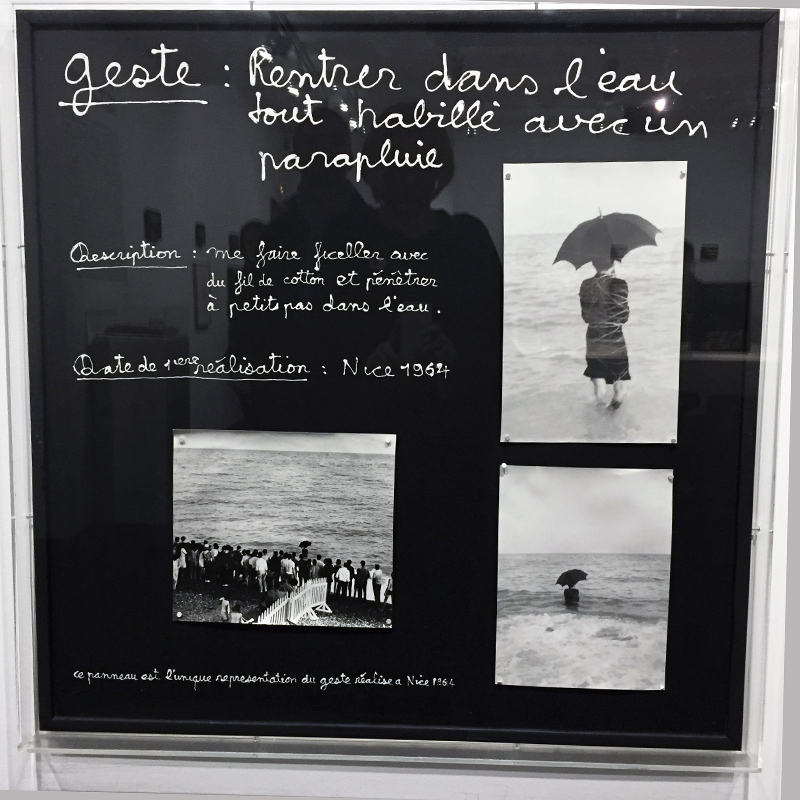 geste : Rentrer dans l'eau
tout habillé avec un
parapluie
Description : me faire ficeller avec
du fil de cotton et pénétrer
à petits pas dans l'eau.
Date de 1ere réalisation : Nice 1964
ce panneau est l'unique representation du geste réalise a Nice 1964